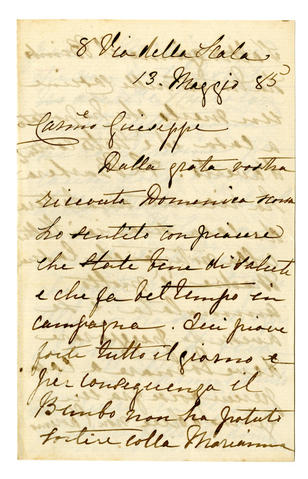 8 Via della Scala
13. Maggio 85
Carmo Giuseppe
Dalla grata vostra
ricevuta Domenica scorsa
ho sentito con piacere
che state bene di salute
e che fa bel tempo in
campagna. Qui piove
forte tutto il giorno e
per conseguenza il
Bimbo non ha potuto
sortire colla Marianna